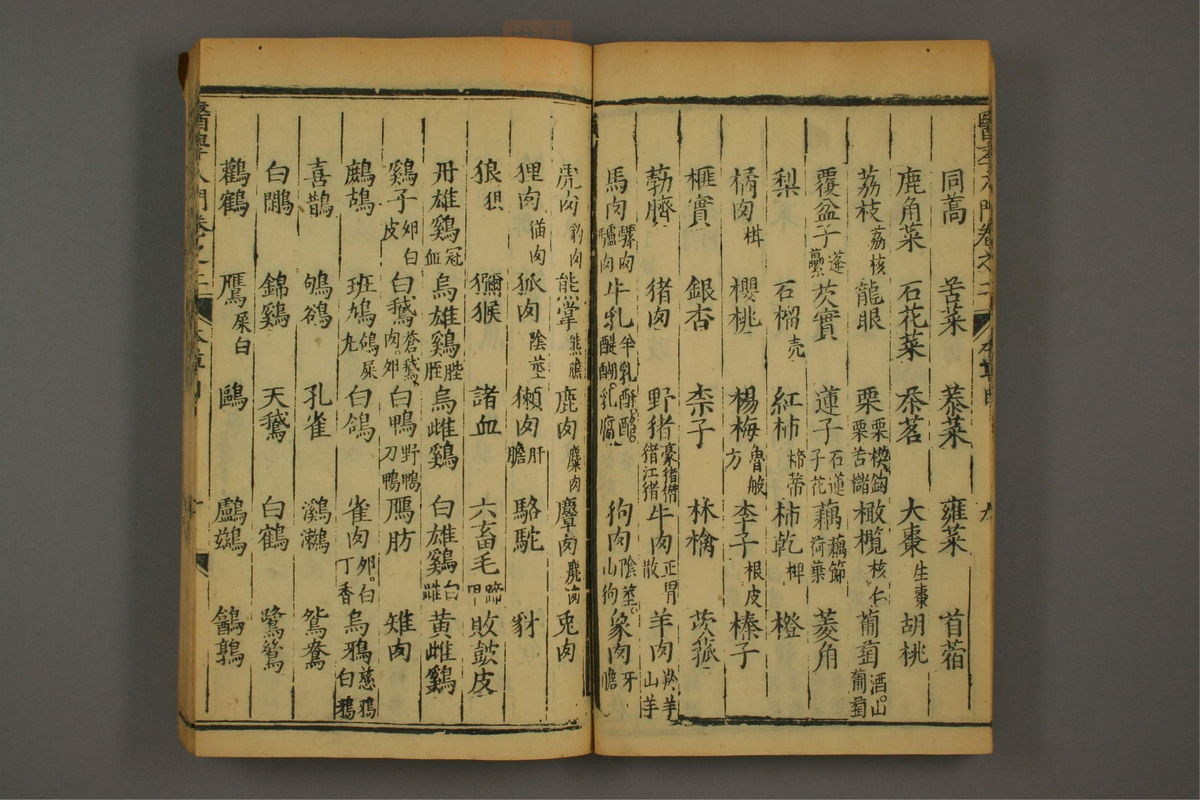 同蒿 苦菜 蓁菜 雍菜 首蓿
鹿角菜 石花菜 茶茗 大棗 生棗 胡桃
荔枝 荔核 龍眼 栗 栗 苦櫧 橄欖 核仁 葡萄 酒。山葡萄
覆盆子 蓬虆 芡實 蓮子 石蓮子花 藕 藕節荷葉 菱角
梨 石榴 壳 紅柿 柿蒂 柿乾 椑 橙
橘肉 櫻桃 楊梅 方 李子 根皮 榛子
榧實 銀杏 柰子 林檎 茨菰
勃臍 猪肉 野猪 豪猪 猪江猪 牛肉 正胃散 羊肉 羚羊山羊
馬肉 騾肉驢肉 牛乳 羊乳酥。酪。醍醐。乳腐 狗肉 陰莖。山狗 象肉 牙膽
虎肉 豹肉 熊掌 熊膽 鹿肉 麋肉 麞肉 麂肉 兎肉
狸肉 猫肉 狐肉 陰莖 獺肉 肝膽 駱駝 豺
狼 狽 獼猴 諸血 六畜毛 蹄甲 敗鼓皮
丹雄鷄 冠血 烏雄鷄 烏雌鷄 白雄鷄 黃雌鷄
鷄子 卵白皮 白鵝 蒼鵝肉。卵 白鴨 野鴨刀鴨 鴈肪 雉肉
鷓鴣 班鳩 鴿屎 白鴿 雀肉 卵。白丁香 烏鴉 慈鴉白鴉
喜鵲 鴝鵒 孔雀 鸂鶒 鴛鴦
白鷴 錦鷄 天鵝 白鶴 鷺鷥
鸛鶴 鷹 屎白 鷗 鸕鷀 鶺鶉
醫學入門卷之二 本草 十